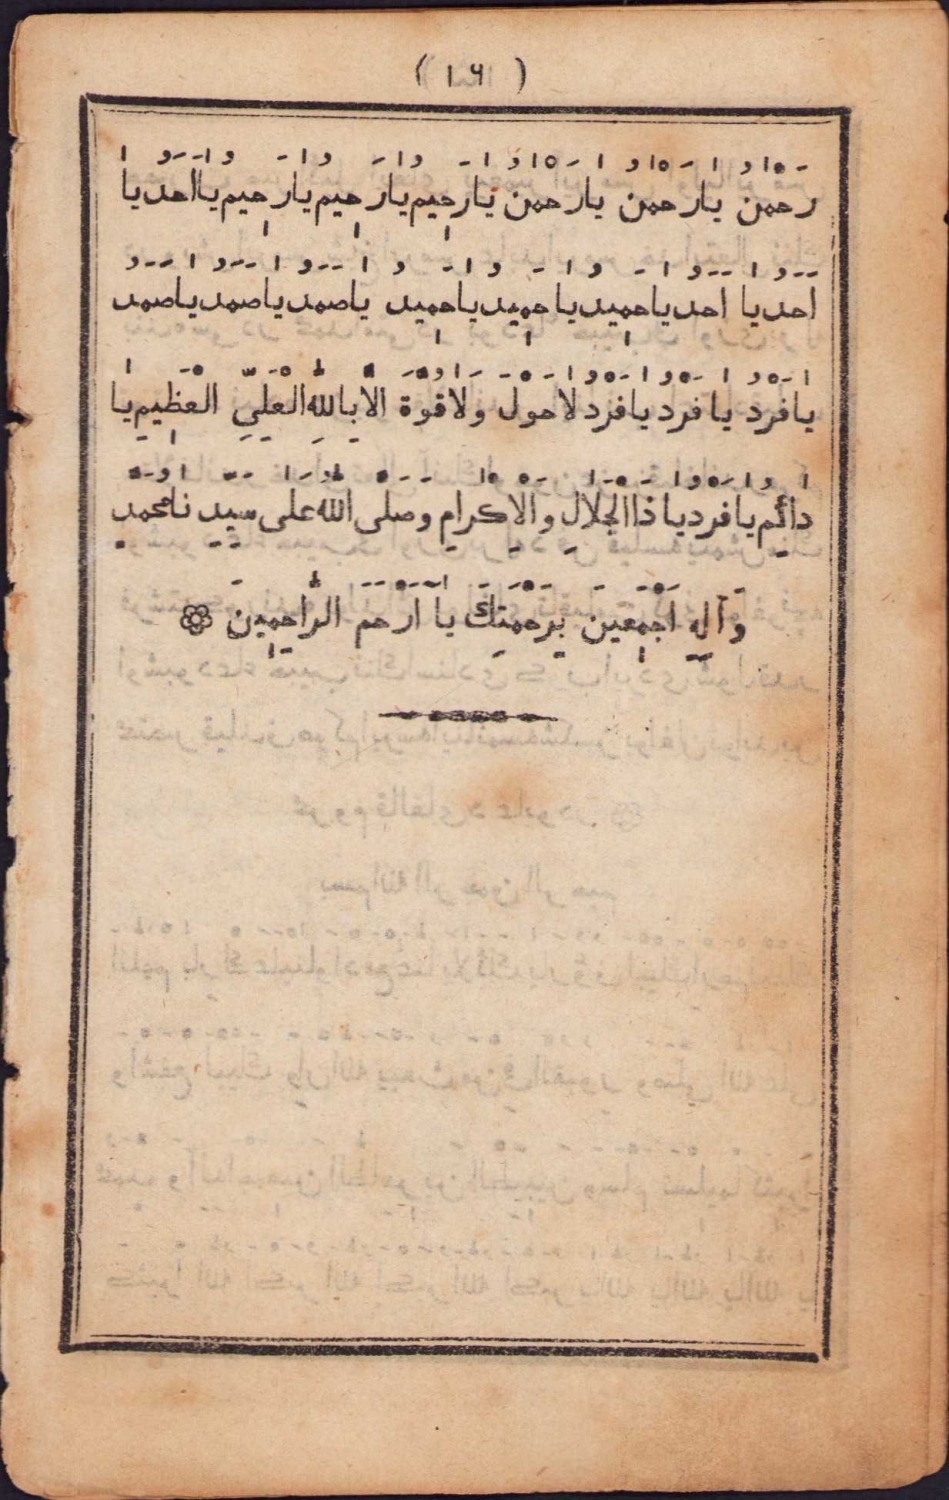 ( ١٦ )
رحمن يارحمن يارحمن يارحيم يارحيم يارحيم يااحد يا
احد يا احد ياحميد ياحميد ياحميد ياصمد ياصمد ياصمد
يافرد يافرد يافرد لاحول ولاقوة الابالله العلي العظيم يا
دائم يافرد ياذاالجلال والاكرام وصلى الله على سيدنا محمد
وآله اجمعين برحمتك يا ارحم الراحمين